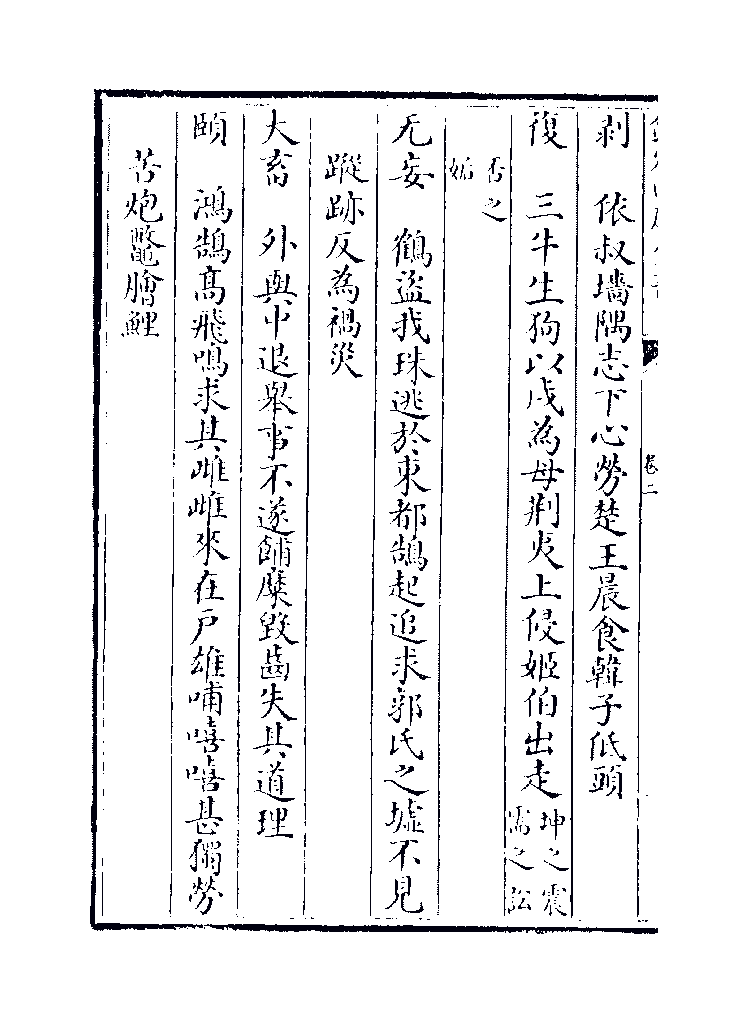 卷二
剥　依叔墻隅志下心勞楚王晨食韓子低頭
復　三牛生狗以戌為母荆夷上侵姬伯出走坤之震需之訟
否之姤
无妄　鶴盗我珠逃於東都鵠起追求郭氏之墟不見
蹤跡反為禍災
大畜　外輿中退舉事不遂餔糜毁齒失其道理
頤　鴻鵠髙飛鳴求其雌雌來在戸雄哺嘻嘻甚獨勞
苦炮鼈膾鯉